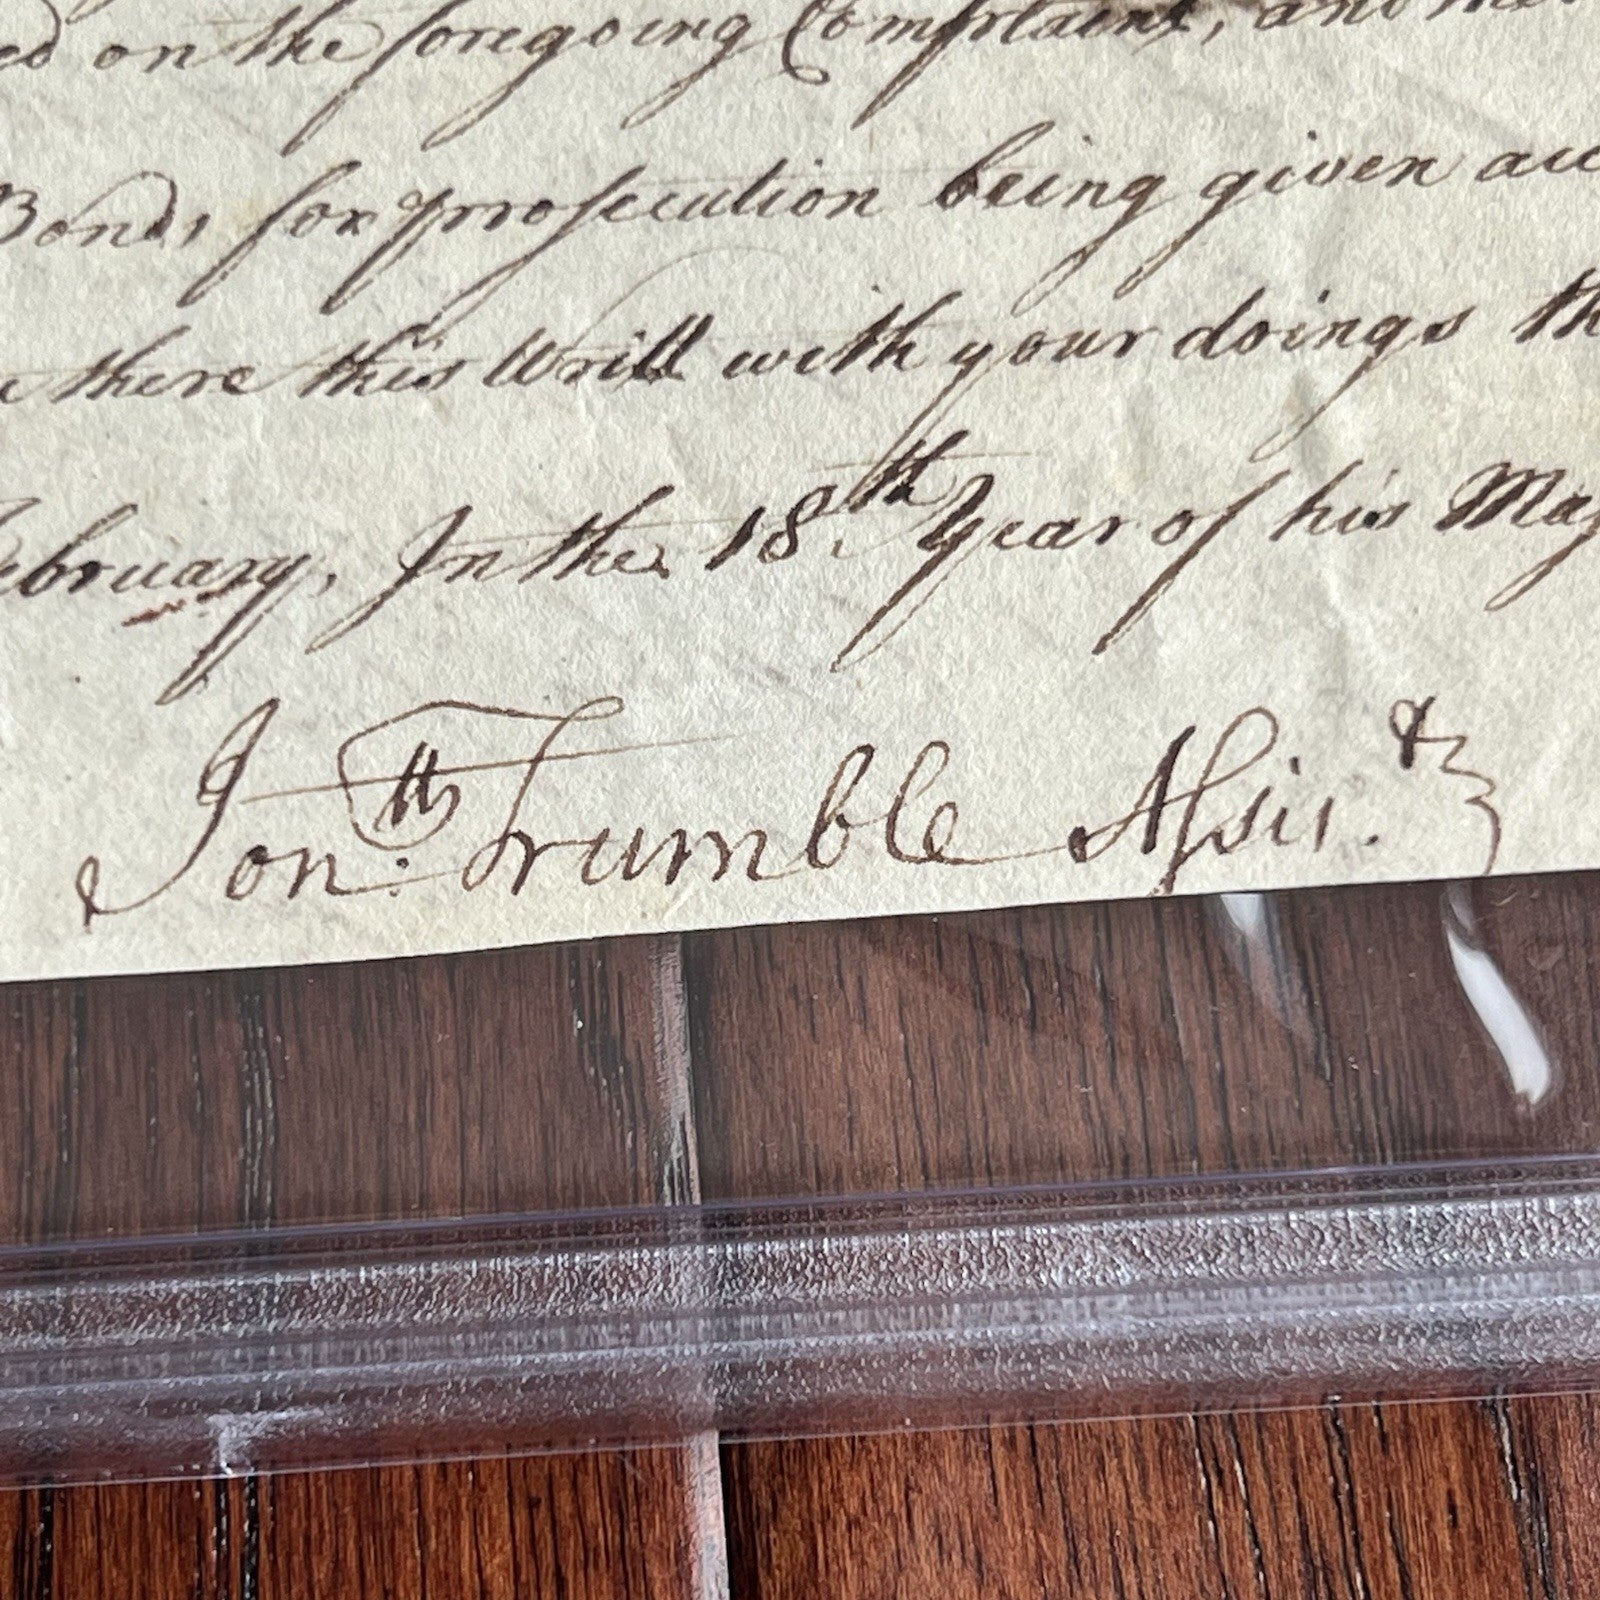 on the foregoing Complaint, and
Bonds for prosecution being given
there this Writt with your doings
February, In the 18th Year of his Maj
Jonth: Trumble Assis.t